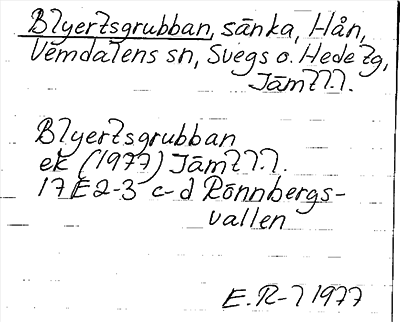 Blyertsgrubban, sänka, Hån,
Vemdalens sn, Svegs o. Hede tg,
Jämtl.l.
Blyertsgrubban
ek (1977) Jämtl.l.
17E2-3 c-d Rönnbergs-
vallen
E.R-l 1977